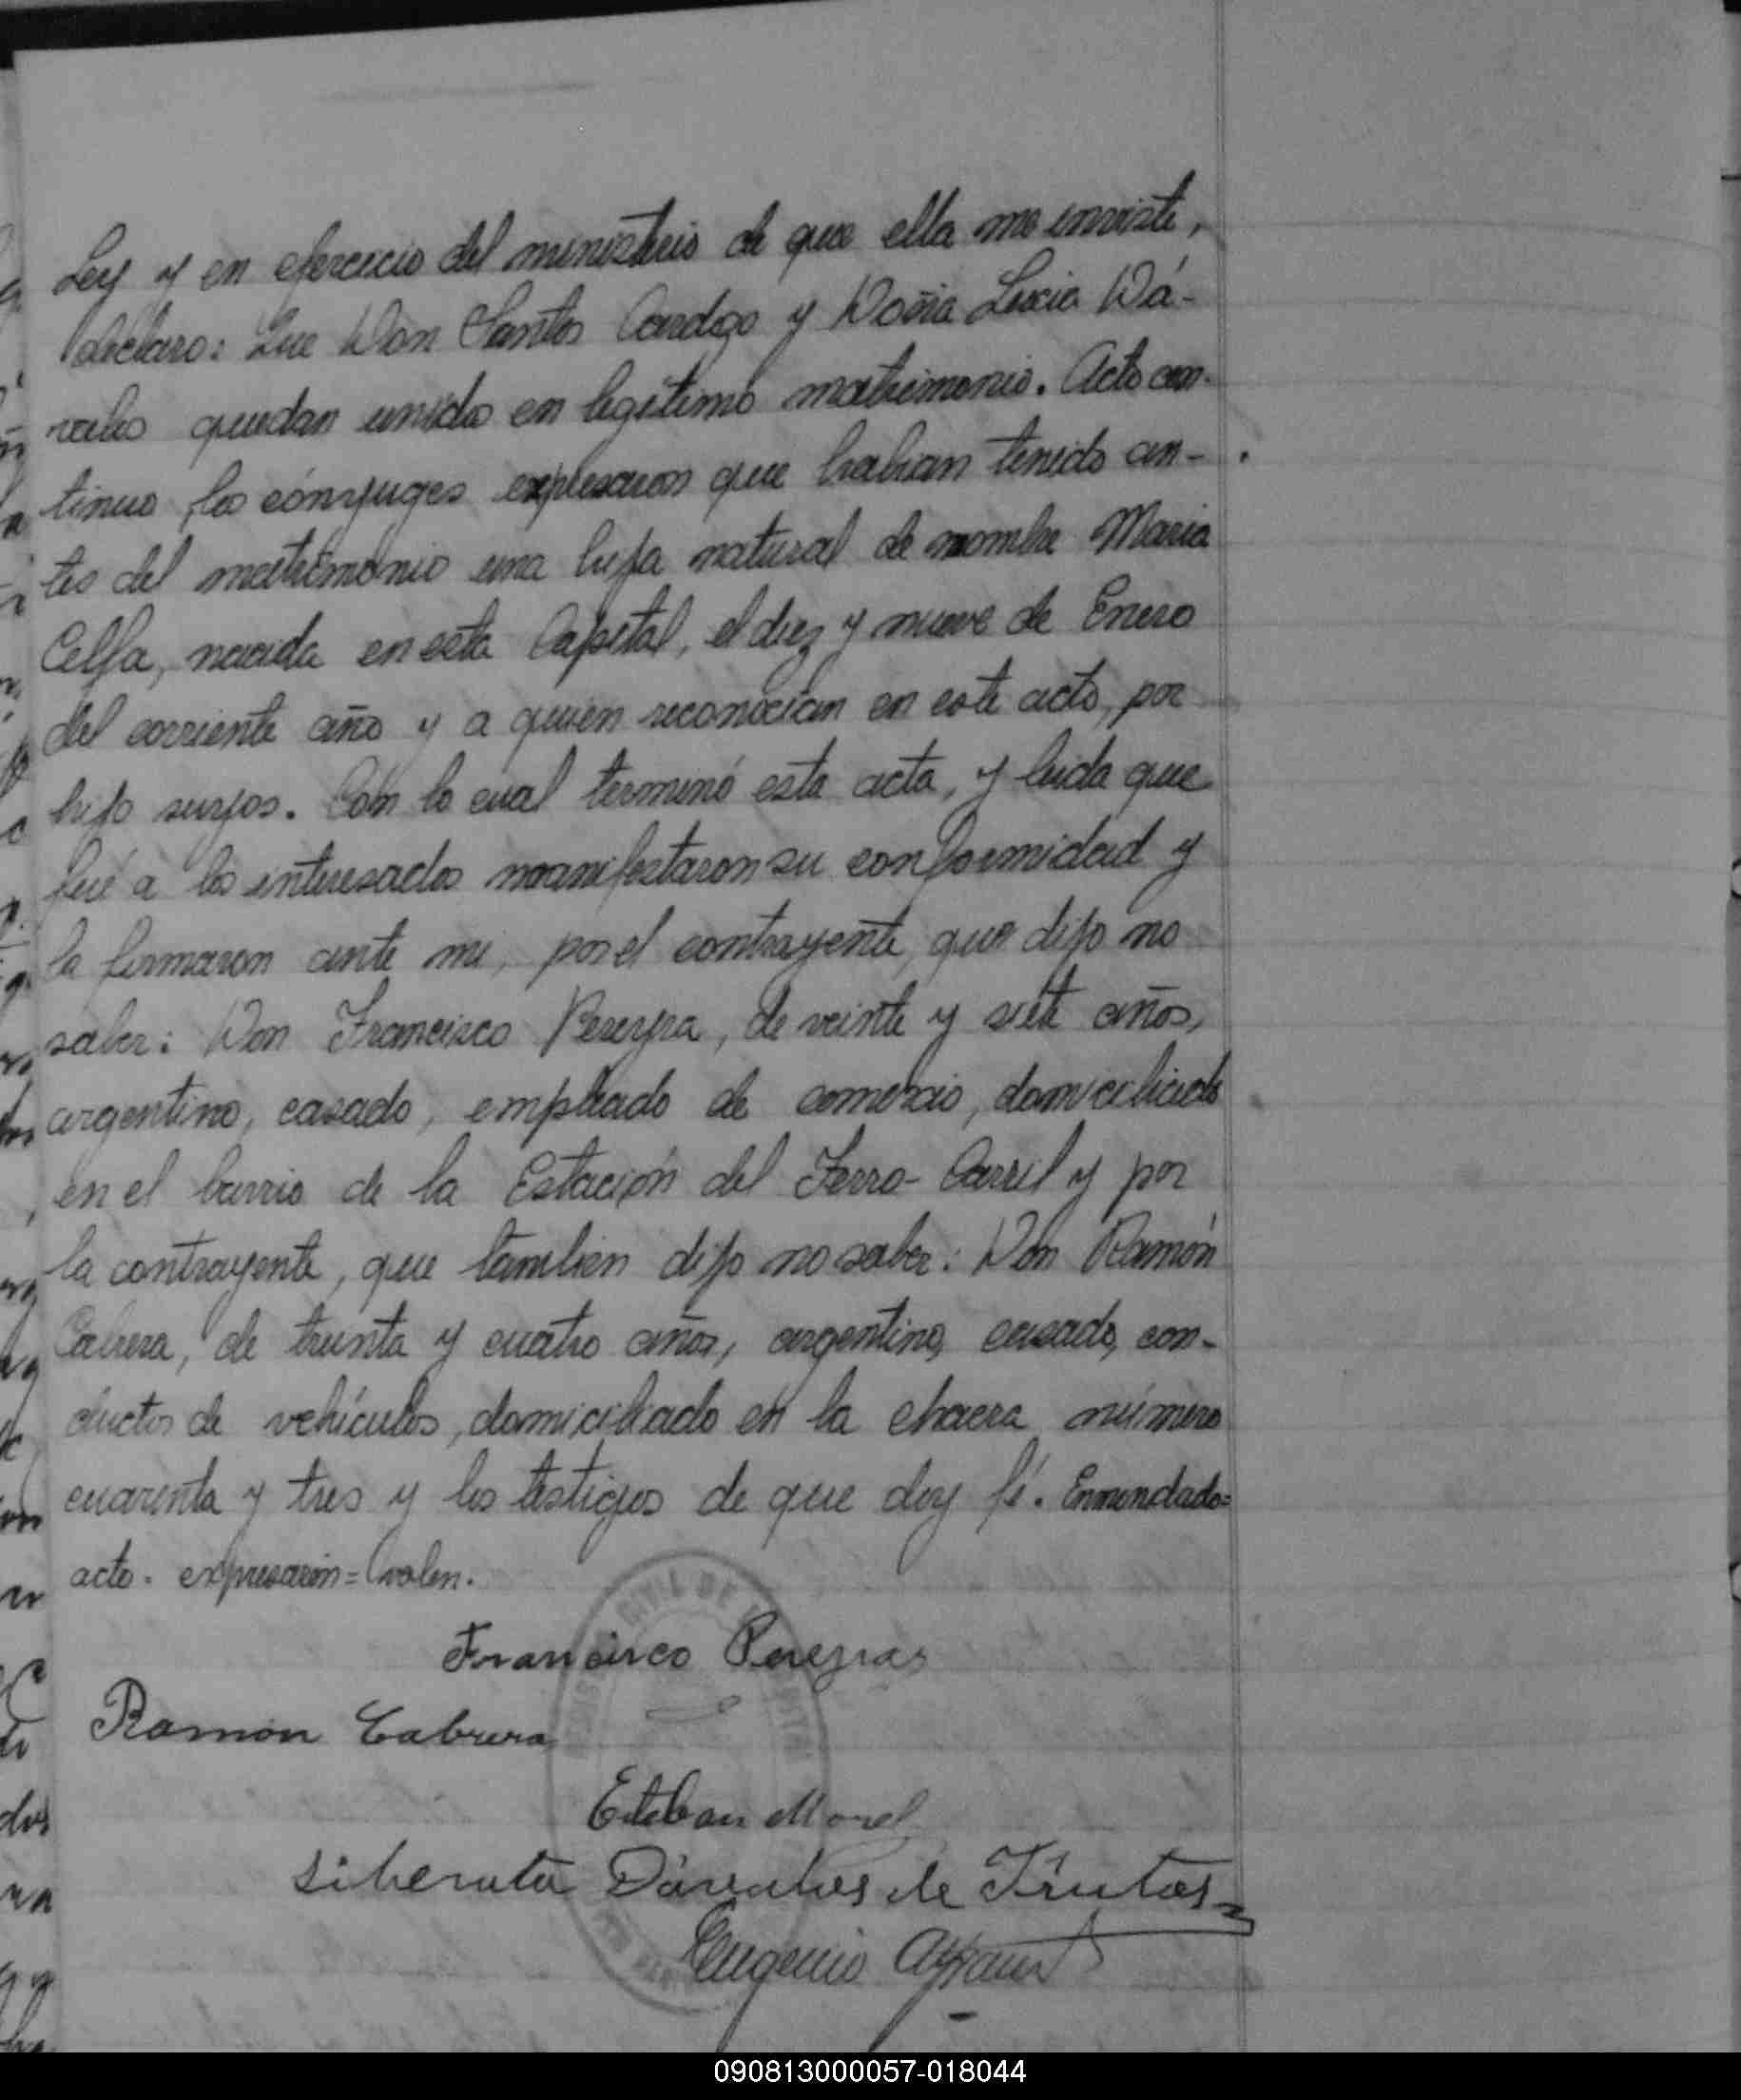 Ley y en ejercicio del ministerio de que ella me inviste,
declaro: Que Don Santos Cardozo y Doña Lucia Dá-
valos quedan unidos en legítimo matrimonio. Acto con-
tinuo, los cónyuges expresaron que habian tenido an-
tes del matrimonio una hija natural de nombre Maria
Celfa, nacida en esta Capital, el diez y nueve de Enero
del corriente año y a quien reconocian en este acto, por
hijo suyos. Con lo cual terminó esta acta, y leida que
fué a los interesados manifestaron su conformidad y
la firmaron ante mi, por el contrayente, que dijo no
saber: Don Francisco Pereyra, de veinte y siete años,
argentino, casado, empleado de comercio, domiciliado
en el barrio de la Estación del Ferro-Carril y por
la contrayente, que tambien dijo no saber: Don Ramón
Cabrera, de treinta y cuatro años, argentino, casado, con-
ductor de vehículos, domiciliado en la chacra número
cuarenta y tres y los testigos de que doy fé. Enmendado=
acto. expresaron= valen.
Francisco Pereyra
Ramon Cabrera
Esteban Morel
Liberata Dávalos de Frutos
Eugenio
CIVIL DE
090813000057-018044